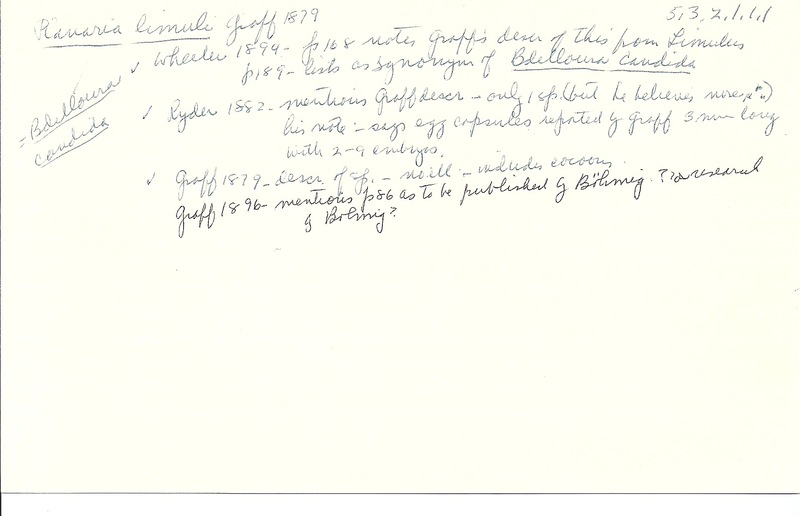 Planaria limuli Graff 1879
5,3,2,1,1,1
= Bdelloura candida
✓ Wheeler 1894 - p168 notes Graff's descr of this from Limulus
p189 - lists as synonym of Bdelloura candida
✓ Ryder 1882 - mentions Graff descr - only 1 sp. (but he believes more,
his note :- says egg capsules reported by Graff 3 mm long
with 2-9 embryos.
✓ Graff 1879 - descr. of sp. - no ill - includes cocoons.
Graff 1896 - mentions p86 as to be published by Böhmig. ? research
by Böhmig?